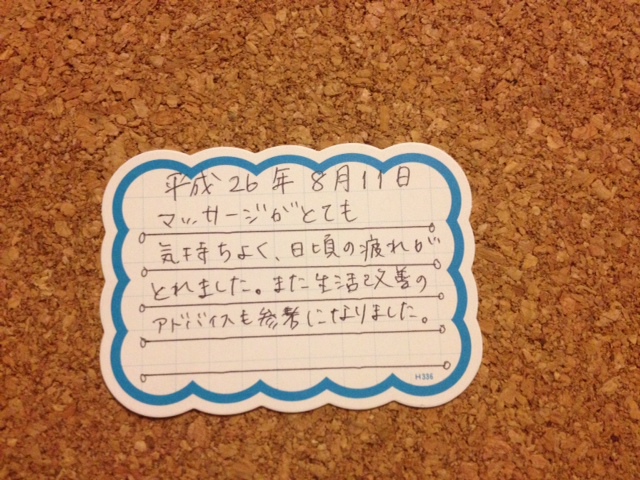 平成26年8月11日
マッサージがとても
気持ちよく、日頃の疲れが
とれました。また生活改善の
アドバイスも参考になりました。
H336